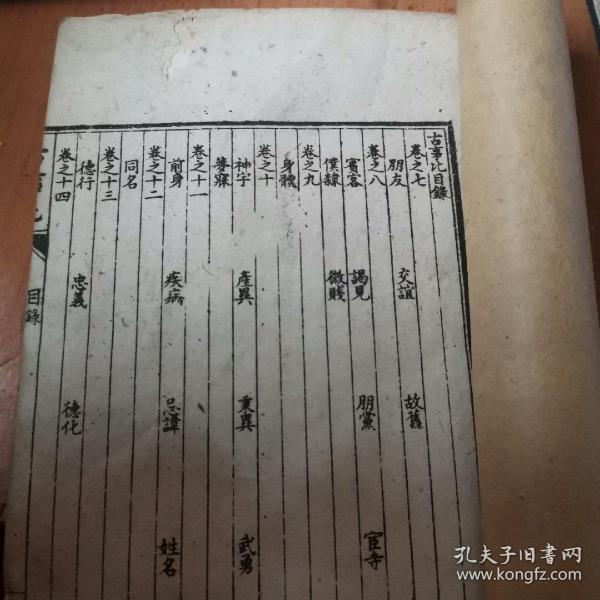 古事比目錄
卷之七
朋友 交誼 故舊
卷之八
賓客 謁見 朋黨 宦寺
僕隸 微賤
卷之九
身體
卷之十
神宇 產異 秉異 武勇
夢寐
卷之十一
前身 疾病 忌諱 姓名
卷之十二
同名
卷之十三
德行 忠義 德化
卷之十四
目錄
孔夫子旧書网
www.kongfz.com